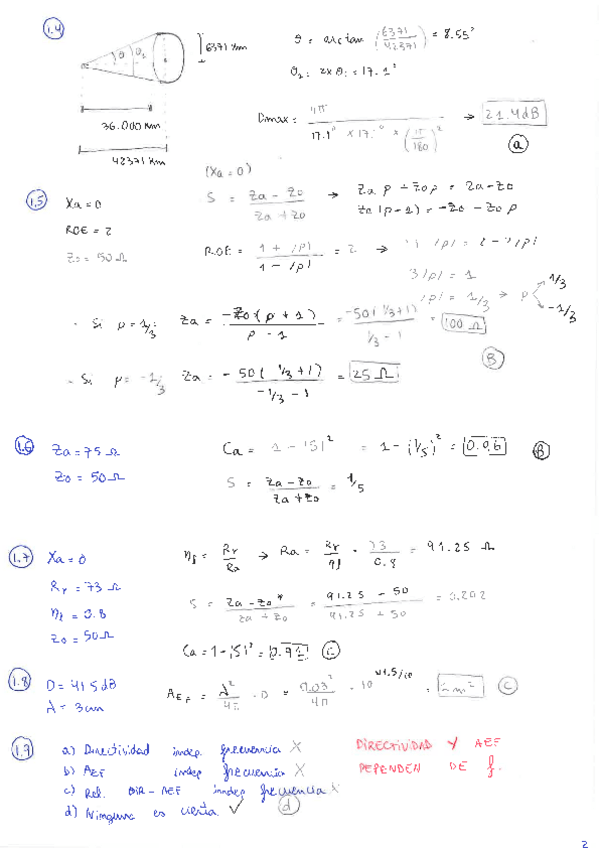 1.4
6371 Km
θ
θ1
36.000 Km
42371 Km
θ = arctan (6371/42371) = 8.55°
θ1 = 2xθ = 17.1°
Dmax = 4π / (17.1° x 17.1° x (π/180)²) → 21.4dB
a
1.5
Xa = 0
ROE = 2
Zo = 50 Ω
(Xa = 0)
S = (Za - Zo)/(Za + Zo) → Za ρ + Zo ρ = Za - Zo
Za (ρ-1) = -Zo - Zo ρ
ROE = (1 + |ρ|)/(1 - |ρ|) = 2 → 1+|ρ| = 2 - 2|ρ|
3|ρ| = 1
|ρ| = 1/3 → ρ
1/3
-1/3
· Si ρ = 1/3: Za = -Zo (ρ + 1)/(ρ - 1) = -50(1/3+1)/(1/3 - 1) = 100 Ω
B
· Si ρ = -1/3 Za = -50(1/3+1)/(-1/3 - 1) = 25 Ω
1.6
Za = 75 Ω
Zo = 50 Ω
Ca = 1 - |S|² = 1 - (1/5)² = 0.96
B
S = (Za - Zo)/(Za + Zo) = 1/5
1.7
Xa = 0
Rr = 73 Ω
ηl = 0.8
Zo = 50 Ω
ηl = Rr/Ra → Ra = Rr/ηl = 73/0.8 = 91.25 Ω
S = (Za - Zo*)/(Za + Zo) = (91.25 - 50)/(91.25 + 50) = 0.292
Ca = 1 - |S|² = 0.91
C
1.8
D = 41.5 dB
λ = 3 cm
AEF = λ²/4π · D = 0.03²/4π · 10^41.5/10 = 1 m²
C
1.9
a) Directividad indep frecuencia X
b) AEF indep frecuencia X
c) Rel. DIR - AEF indep frecuencia X
d) Ninguna es cierta ✓
d
DIRECTIVIDAD Y AEF
DEPENDEN DE f.
2